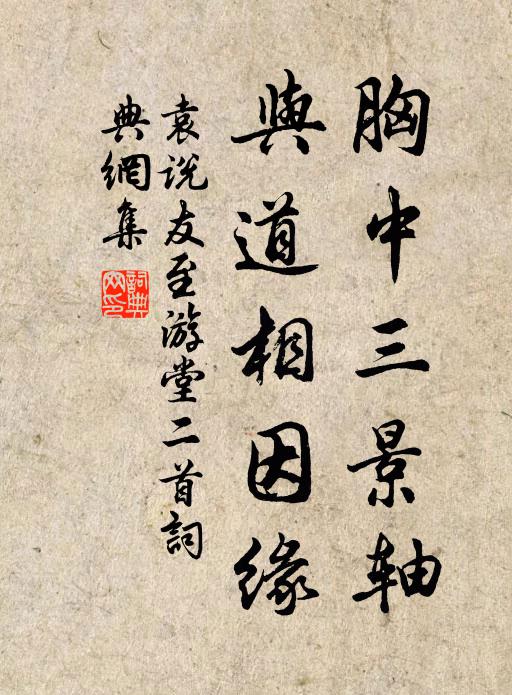 胸中三景軸
與道相因緣
袁說友至游堂二首詞
典網集
詞典網印